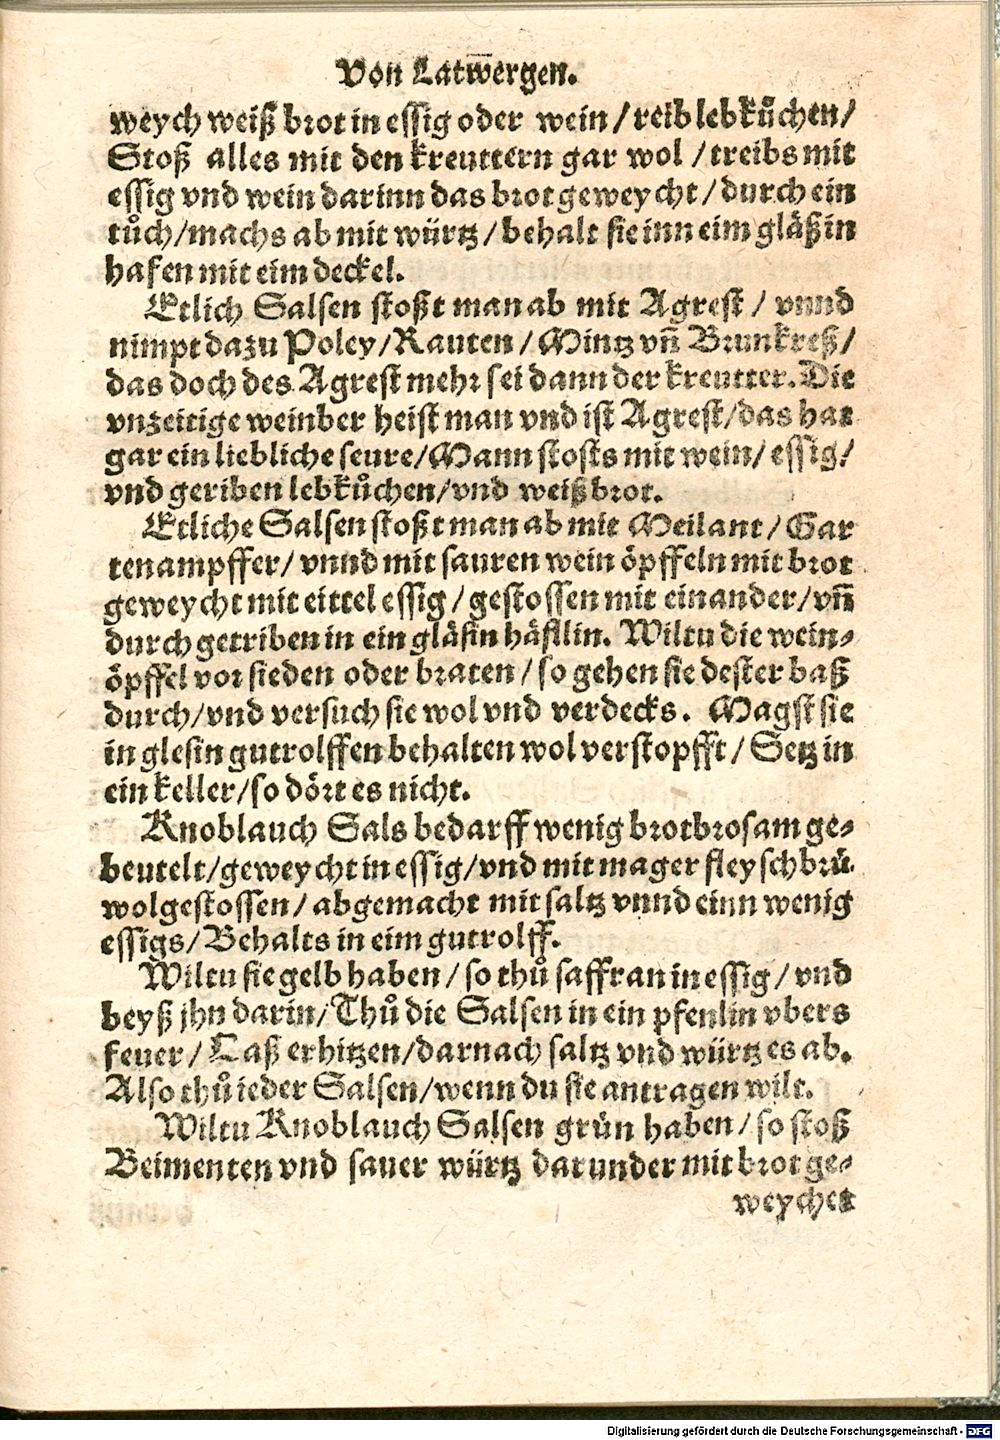 Von Latw̄ergen.
weych weiß brot in essig oder wein / reib lebkůchen /
Stoß alles mit den kreuttern gar wol / treibs mit
essig vnd wein darinn das brot geweycht / durch ein
tůch / machs ab mit würtz / behalt sie inn eim gläßin
hafen mit eim deckel.
Etlich Salsen stoßt man ab mit Agrest / vnnd
nimpt dazu Poley / Rauten / Mintz vn̄ Brunkreß /
das doch des Agrest mehr sei dann der kreutter. Die
vnzeitige weinber heist man vnd ist Agrest / das hat
gar ein liebliche seure / Mann stosts mit wein / essig /
vnd geriben lebkůchen / vnd weiß brot.
Etliche Salsen stoßt man ab mit Meilant / Gar
tenampffer / vnnd mit sauren wein öpffeln mit brot
geweycht mit eittel essig / gestossen mit einander / vn̄
durch getriben in ein gläsin häfllin. Wiltu die wein⸗
öpffel vor sieden oder braten / so gehen sie dester baß
durch / vnd versuch sie wol vnd verdecks. Magst sie
in glesin gutrolffen behalten wol verstopfft / Setz in
ein keller / so dört es nicht.
Knoblauch Sals bedarff wenig brotbrosam ge⸗
beutelt / geweycht in essig / vnd mit mager fleyschbrü.
wolgestossen / abgemacht mit saltz vnnd einn wenig
essigs / Behalts in eim gutrolff.
Wiltu sie gelb haben / so thů saffran in essig / vnd
beyß jhn darin / Thů die Salsen in ein pfenlin vbers
feuer / Laß erhitzen / darnach saltz vnd würtz es ab.
Also thů ieder Salsen / wenn du sie antragen wilt.
Wiltu Knoblauch Salsen grün haben / so stoß
Beimenten vnd sauer würtz darunder mit brot ge⸗
weychet
Digitalisierung gefördert durch die Deutsche Forschungsgemeinschaft - DFG